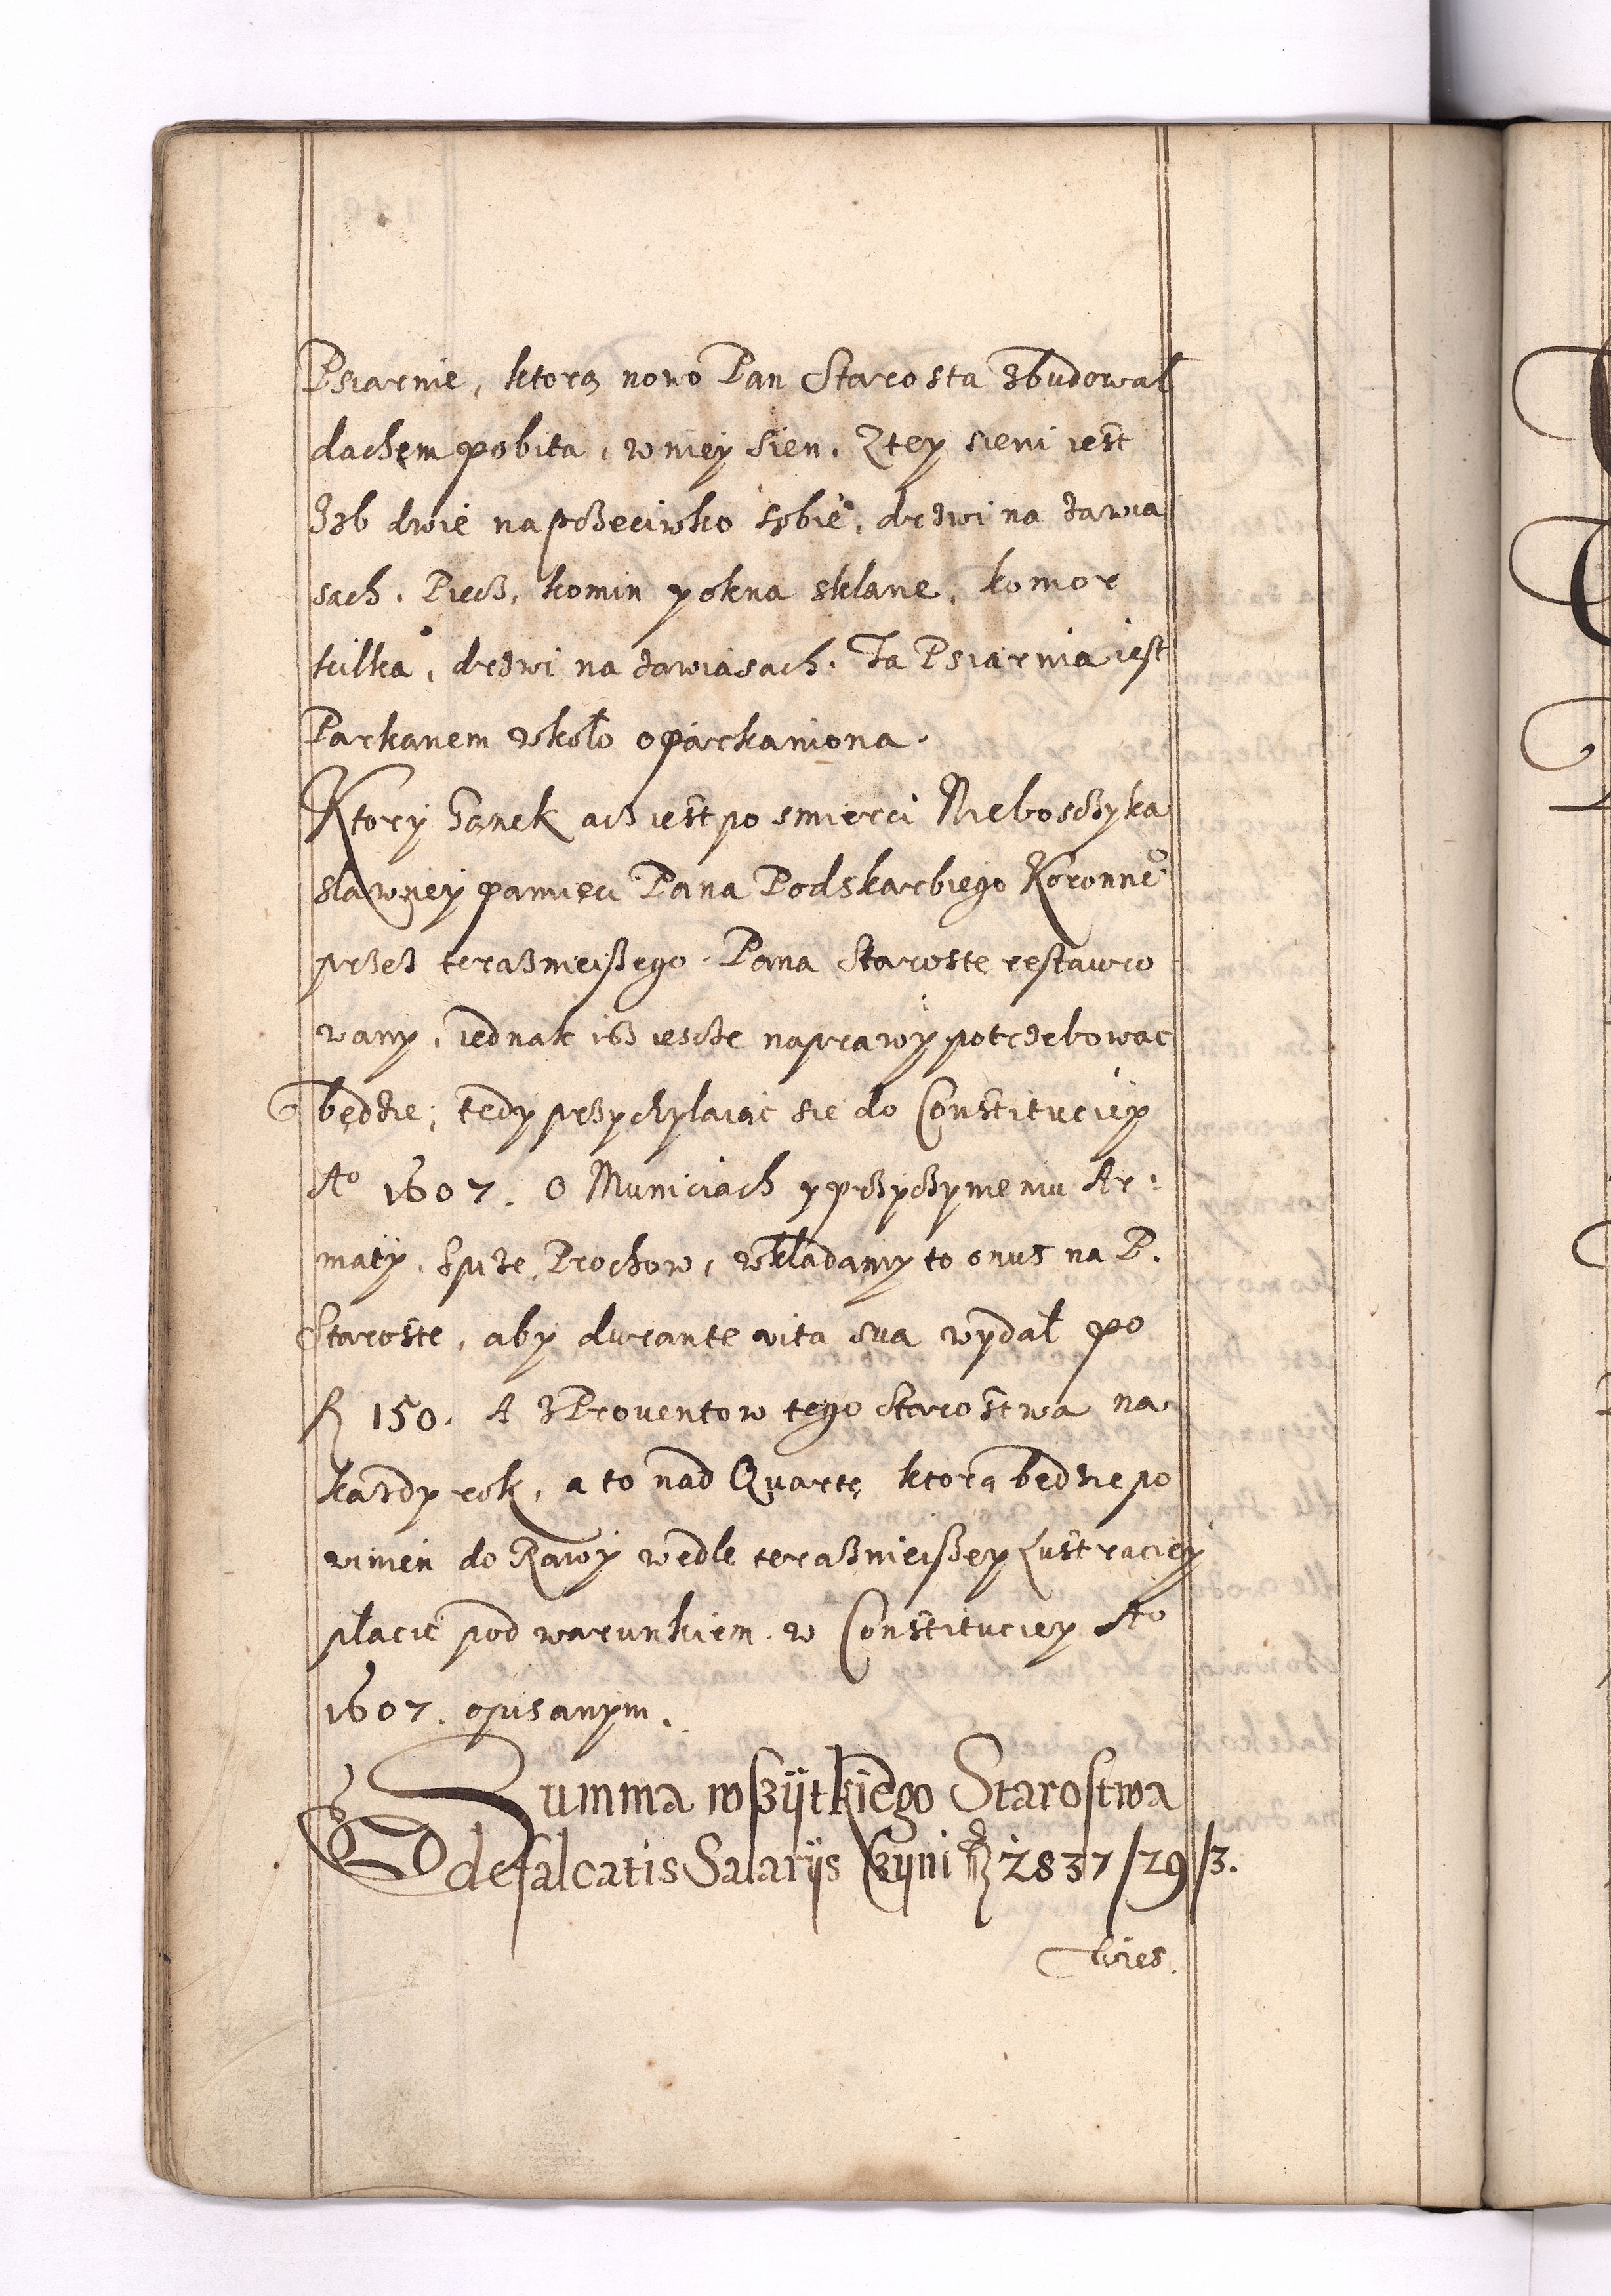 Psiarnie, ktorą nowo Pan Starosta zbudował
dachem pobita, w niey sien, Z tey sieni iest
Izb dwie naprzeciwko sobie, drzwi na zawia
sach. Piecz, komin y okna sklane, komor
kilka, drzwi na zawiasach. Ta Psiarnia iest
Parkanem wkoło oparkaniona.
Ktory Zanek acz iest po smierci Nieboszczyka
sławney pamięci Pana Podskarbiego Koronne°
przez teraznieiszego Pana Staroste restauro
wany, iednak isz iescze naprawy potrzebowac
będzie; tedy przychylaiąc sie do Constituciey
A° 1607. O Municiach y przyczynieniu Ar:
maty, Spize, Prochow, wkładamy to onus na P.
Staroste, aby durante vita sua wydał po
fl 150. A z Proventow tego Starostwa na
kazdy rok, a to nad Quartę ktorą będzie po
winien do Rawy wedle teraznieiszey Lustraciey
płacić pod warunkiem w Constituciey A°
1607. opisanym.
Summa wszytkiego Starostwa
defalcatis Salariis czyni fl 2837/29/3.
Wies.